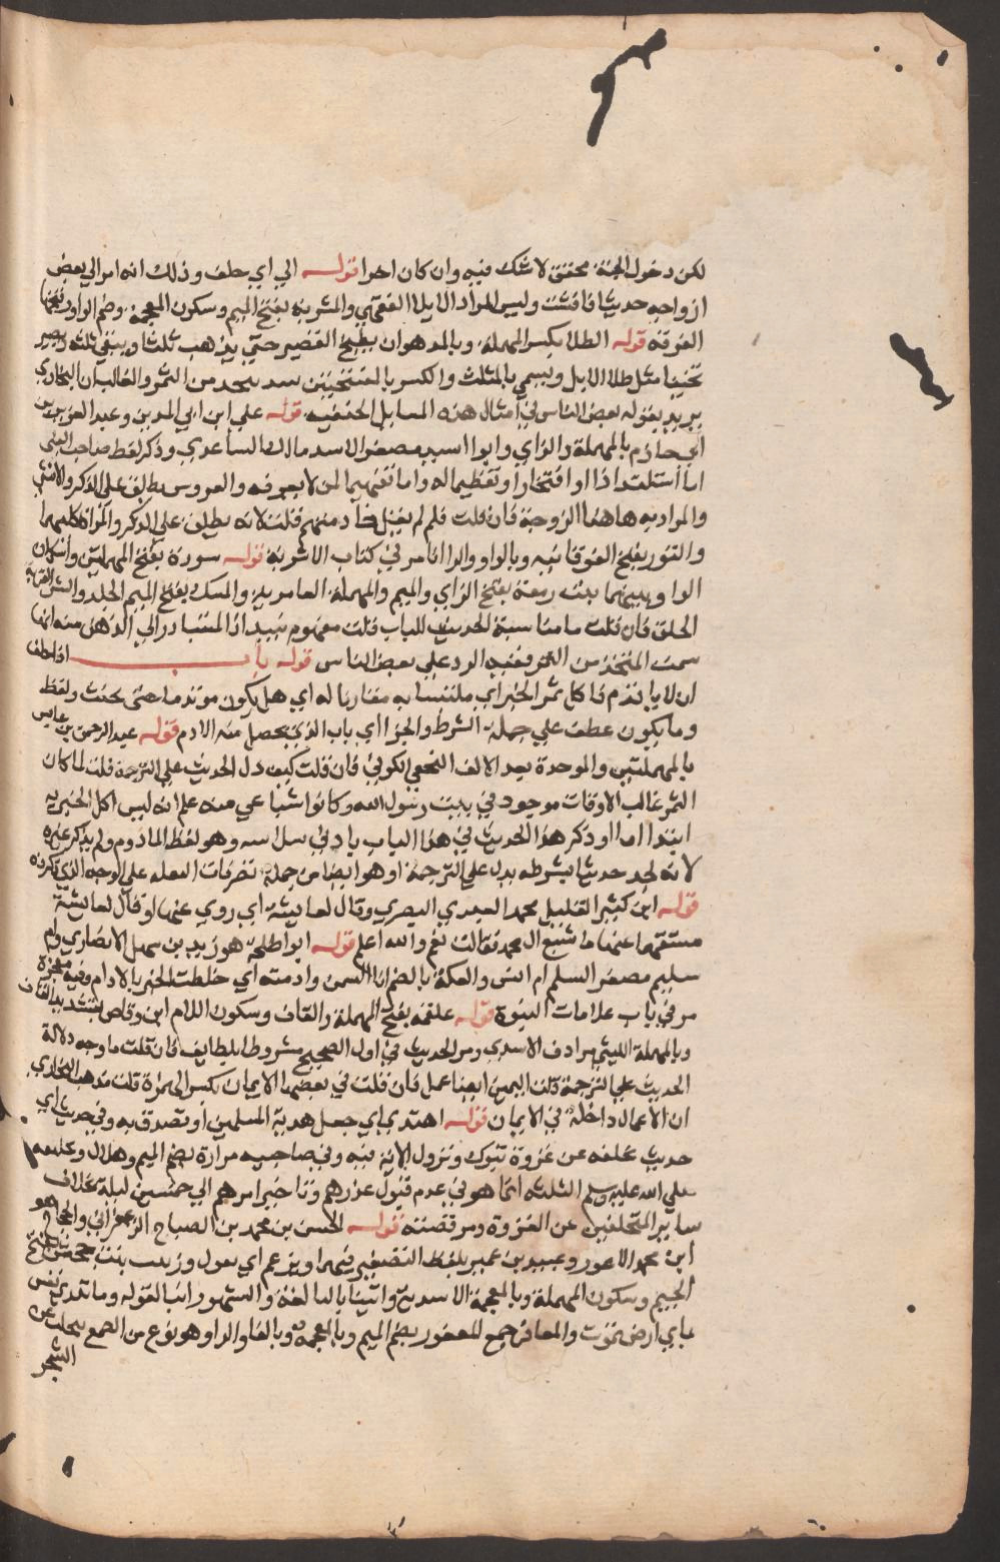 لكن دخول الجنة محقق لا شك فيه وان كان اخرا قوله الي اي حلف وذلك انه امر الي بعض
ازواجه حديثا فافشت وليس المراد الايلا الفقهي والمشربة بفتح الميم وسكون المعجمة وضم الراو وفتحها
الغرفة قوله الطلا بكسر المهملة وبالمد هو ان يطبخ العصير حتي يذهب ثلثاه ويبقي ثلثه ويصير
تخينا مثل طلا الابل ويسمي بالمثلث والسكر بالفتحتين نبيذ يتخذ من التمر والغالب ان البخاري
يريد بقوله بعض الناس في امثال هذه المسايل الحنفية قوله علي ابن ابي المديني وعبد العزيز بن
ابي حازم بالمهملة والزاي وابوا اسيد مصغر الاسد مالك الساعدي وذكر لفظ صاحب النبي
اما استلذاذا او افتخارا وتعظيما له واما تفهيما لمن لا يعرفه والعروس يطلق علي الذكر والانثي
والمراد به هاهنا الزوجة فان قلت فلم لم يقل خادمتهم قلت لانه يطلق علي الذكر والمراة كليهما
والتور بفتح الفوقانية وبالواو والرا انا مر في كتاب الاشربة قوله سودة بفتح المهملتين واسكان
الواو بينهما بنت زمعة بفتح الزاي والميم والمهملة العامرية والمسك بفتح الميم الجلد والشن القربة
الخلق فان قلت ما مناسبة الحديث للباب قلت مفهوم نبيذ اذ المتبادر الي الذهن منه انها
سمت المتخذ من التمر ففيه الرد علي بعض الناس قوله باب اذا حلف
ان لا ياتدم فاكل تمرا بخبز اي ملتبسا به مقاربا له اي هل يكون موتدما حتي يحنث ولفظ
وما يكون عطف علي جملة الشرط والجزا اي باب الذي يحصل منه الادم قوله عبد الرحمن بن عابس
بالمهملتين والموحدة بعد الالف النخعي الكوفي فان قلت كيف دل الحديث علي الترجمة قلت لما كان
التمر غالب الاوقات موجود في بيت رسول الله وكانوا شباعي منه علم انه ليس اكل الخبز به
ايتداما او ذكر هذا الحديث في هذا الباب بادني ملابسة وهو لفظ المادوم ولم يذكر غيره
لانه لم يجد حديثا بشرطه يدل علي الترجمة او هو ايضا من جملة تصرفات النقلة علي الوجه الذي ذكروه
قوله ابن كثير ضد القليل محمد العبدي البصري وقال لعايشة اي روي عنها او قال لعايشة
مستفهما عنها ما شبع ال محمد فقالت نعم والله اعلم قوله ابو طلحة هو زيد بن سهل الانصاري وام
سليم مصغر السلم ام انس والعكة بالضم انا السمن وادمته اي خلطت الخبز بالادام وفيه معجزة
مر في باب علامات النبوة قوله علقمة بفتح المهملة والقاف وسكون اللام ابن وقاص بتشديد القاف
وبالمهملة الليثي مرادف الاسدي ومر الحديث في اول الصحيح مشروطا بلطايف فان قلت ما وجه دلالة
الحديث علي الترجمة قلت اليمين ايضا عمل فان قلت في بعضها الايمان بكسر الهمزة قلت مذهب البخاري
ان الاعمال داخلة في الايمان قوله اهدي اي جعل هدية المسلمين او تصدق به وفي حديث اي
حديث تخلفه عن غزوة تبوك ونزول الاية فيه وفي صاحبيه مرارة بضم الميم وهلال وتخلفه
صلي الله عليه وسلم الثلثة انما هو في عدم قبول عذرهم وتاخير امرهم الي خمسين ليلة بخلاف
ساير المتخلفين عن الغزوة ومر قصته قوله الحسن بن محمد بن الصباح الزعفراني والحجاج هو
ابن محمد الاعور وعبيد بن عمير بلفظ التصغير فيهما ويزعم اي يقول وزينب بنت جحش بفتح
الجيم وسكون المهملة وبالمعجمة الاسدية وايتنا بالتا لغة والمشهور اينا لقوله وما تدري نفس
باي ارض تموت والمغافر جمع للمغفور بضم الميم وبالمعجمة وبالفا والراو هو نوع من الصمغ يتحلب عن
الشجر